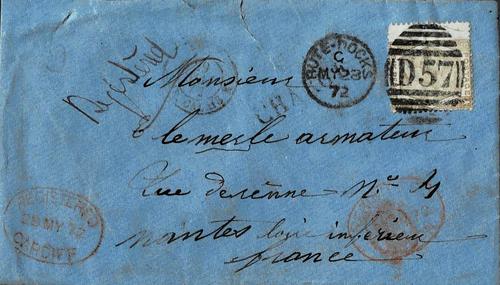 Registered
BUTE-DOCKS
C
MY 28
72
D57
Monsieur
lemesle armateur
Rue deséenne Nº 4
nantes loire inférieur
france
REGISTERED
28 MY 72
CARDIFF